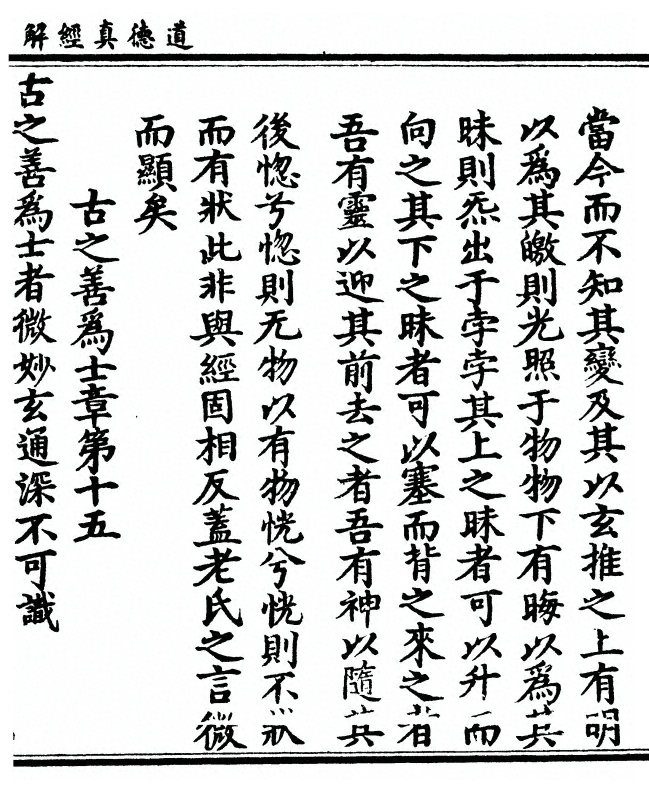 道德真經解
當今而不知其變及其以玄推之上有明
以爲其皦則光照于物物下有晦以爲其
昧則炁出于孛孛其上之昧者可以升而
向之其下之昧者可以塞而背之來之者
吾有靈以迎其前去之者吾有神以隨其
後惚兮惚則无物以有物恍兮恍則不狀
而有狀此非與經固相反蓋老氏之言微
而顯矣
古之善爲士章第十五
古之善爲士者微妙玄通深不可識